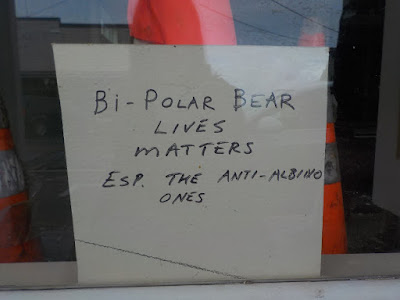 Bi-POLAR BEAR
LIVES
MATTERS
ESP. THE ANTI-ALBINO
ONES